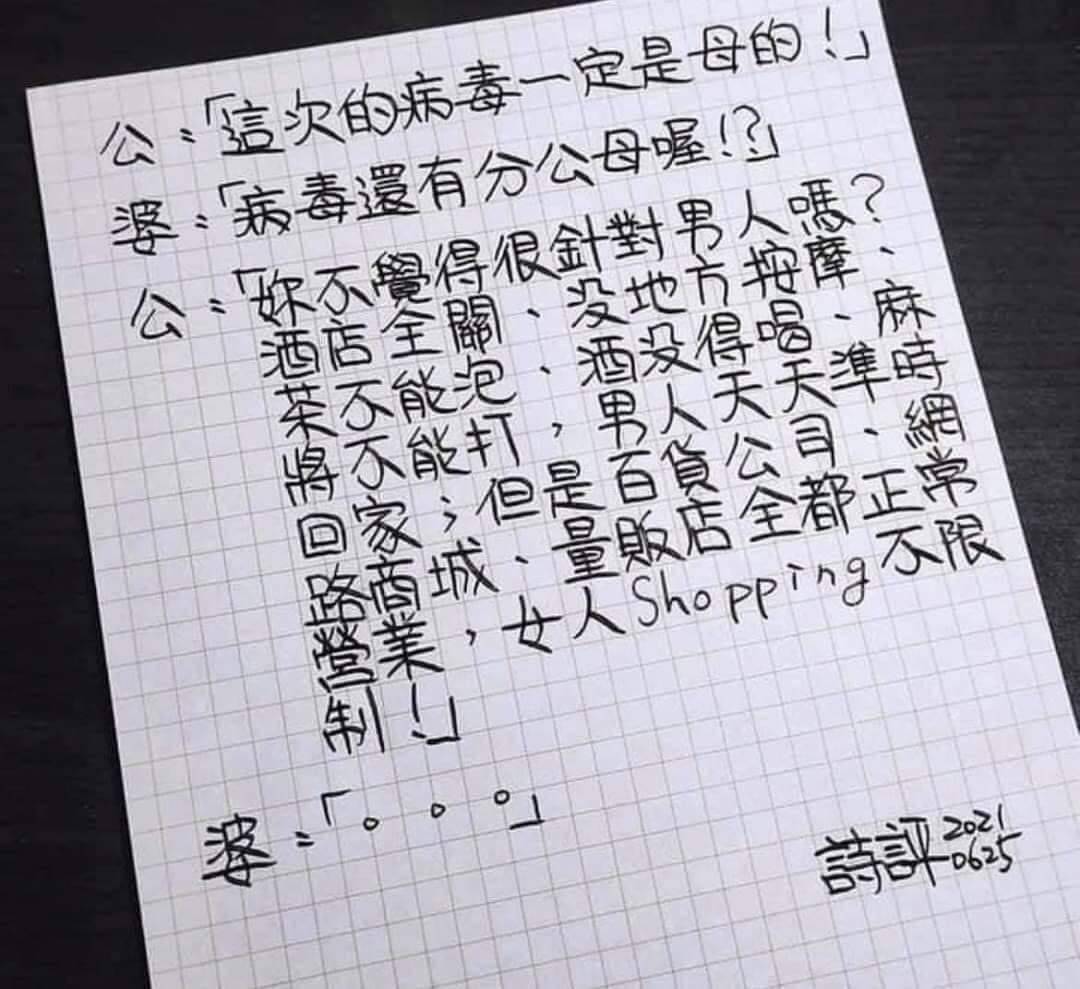 公：「這次的病毒一定是母的！」
婆：「病毒還有分公母喔!?」
公：「妳不覺得很針對男人嗎？
酒店全關、没地方按摩、
茶不能泡、酒没得喝、麻
將不能打，男人天天準時
回家；但是百貨公司、網
路商城、量販店全都正常
營業，女人Shopping不限
制！」
婆：「。。。」
詩評 2021
0625